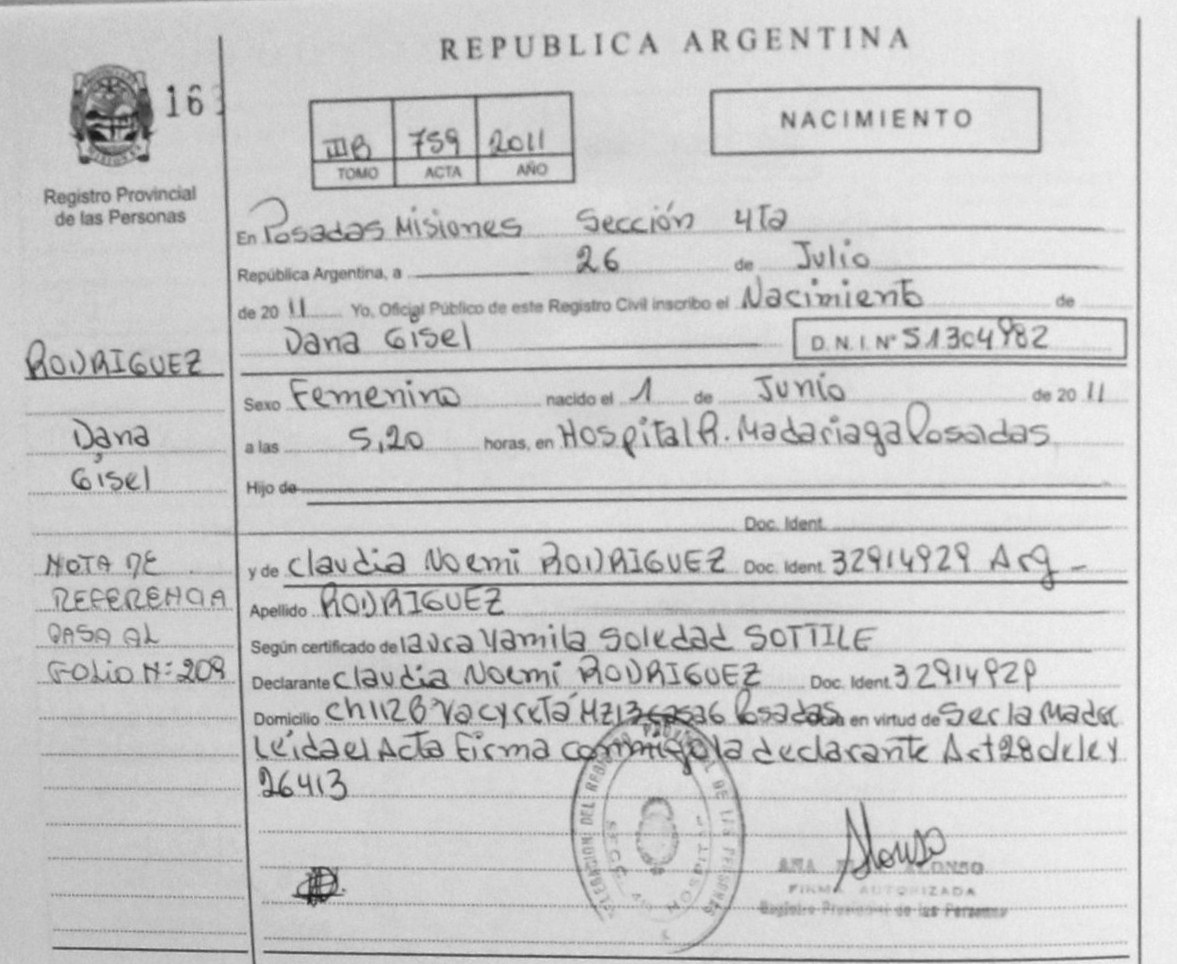 REPUBLICA ARGENTINA
16
NACIMIENTO
IIIB 759 2011
TOMO ACTA AÑO
Registro Provincial
de las Personas
En Posadas Misiones Sección 4Ta
República Argentina, a 26 de Julio
de 2011 Yo, Oficial Público de este Registro Civil inscribo el Nacimiento de
Dana Gisel D. N. I. N° 51304982
RODRIGUEZ
Sexo Femenino nacido el 1 de Junio de 2011
Dana
a las 5,20 horas, en Hospital R. Madariaga Posadas
Gisel
Hijo de
Doc. Ident.
NOTA DE
y de Claudia Noemi RODRIGUEZ Doc. Ident. 32914929 Arg -
REFERENCIA
Apellido RODRIGUEZ
PASA AL
Según certificado de laura Yamila Soledad SOTTILE
FOLIO N: 209
Declarante Claudia Noemi RODRIGUEZ Doc. Ident. 32914929
Domicilio Ch112B Yacyretá Mz13 Posadas en virtud de Ser la Madre
Leída el Acta Firma conmigo la declarante Art 28 de ley
26413
DELEGACION DEL REGISTRO PROVINCIAL DE LAS PERSONAS
Alonso
ANA ALONSO
FIRMA AUTORIZADA
Registro Provincial de las Personas